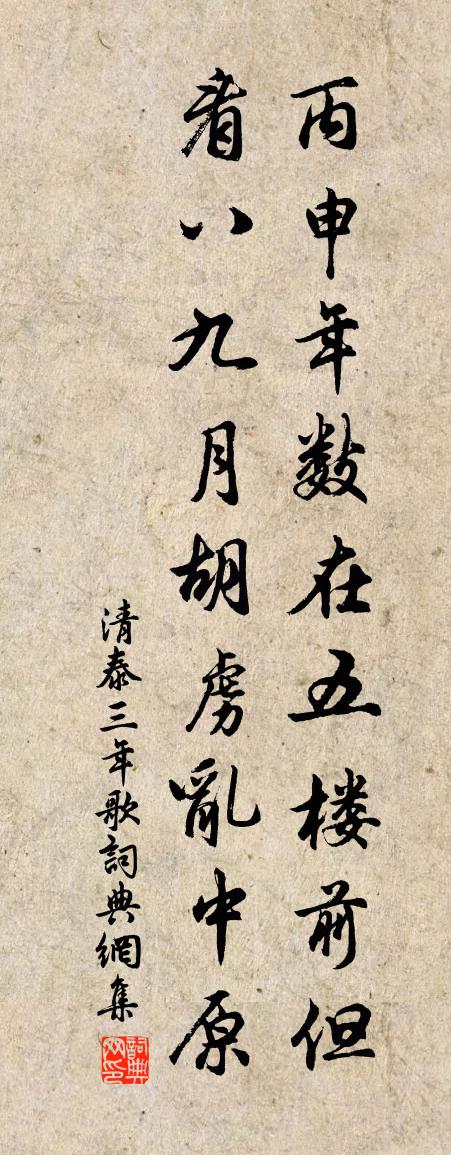 丙申年数在五楼前但
看八九月胡虏乱中原
清泰三年歌詞典網集
詞典网印